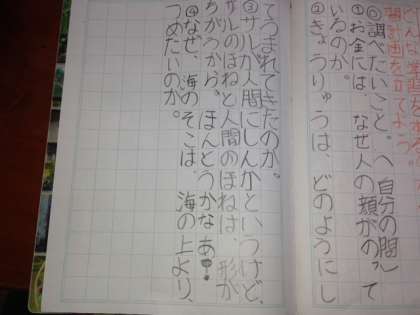 計画を立てよう
◎調べたいこと。〈自分の問い〉
①お金には、なぜ人の顔がのって
いるのか。
②きょうりゅうは、どのようにし
てうまれてきたのか。
③サルが人間にしんかというけど、
サルのほねと人間のほねは、形が
ちがうから、ほんとうかなあ!
④なぜ、海のそこは、海の上より、
つめたいのか。